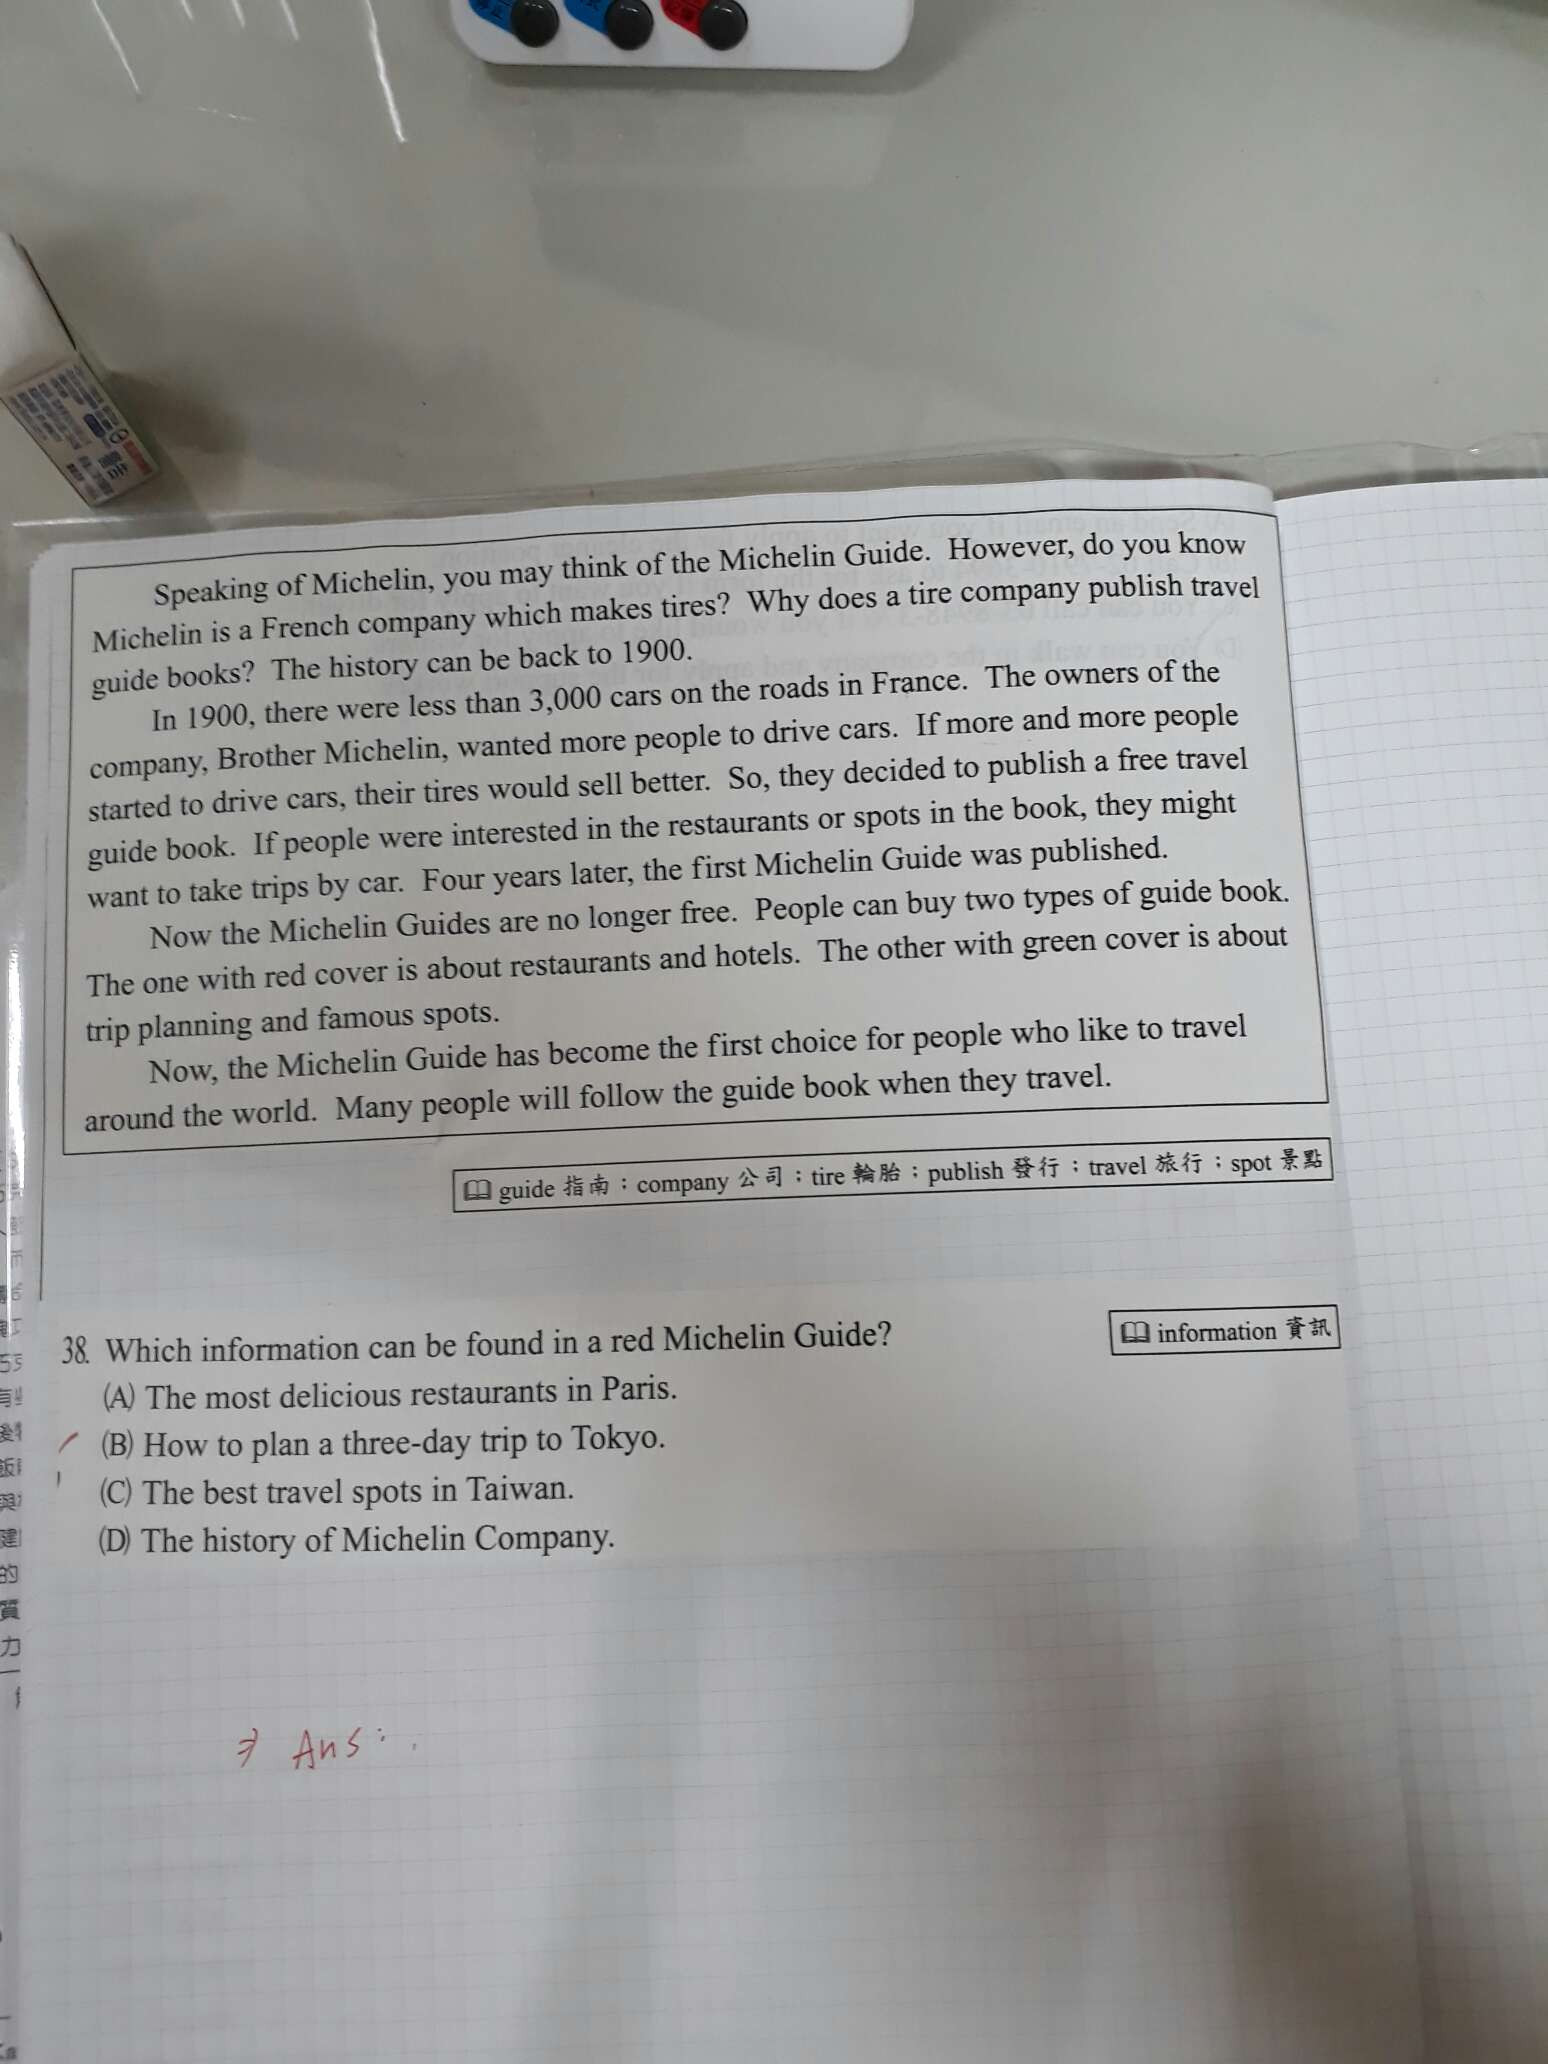 Speaking of Michelin, you may think of the Michelin Guide. However, do you know
Michelin is a French company which makes tires? Why does a tire company publish travel
guide books? The history can be back to 1900.
In 1900, there were less than 3,000 cars on the roads in France. The owners of the
company, Brother Michelin, wanted more people to drive cars. If more and more people
started to drive cars, their tires would sell better. So, they decided to publish a free travel
guide book. If people were interested in the restaurants or spots in the book, they might
want to take trips by car. Four years later, the first Michelin Guide was published.
Now the Michelin Guides are no longer free. People can buy two types of guide book.
The one with red cover is about restaurants and hotels. The other with green cover is about
trip planning and famous spots.
Now, the Michelin Guide has become the first choice for people who like to travel
around the world. Many people will follow the guide book when they travel.
guide 指南；company 公司；tire 輪胎；publish 發行；travel 旅行；spot 景點
38. Which information can be found in a red Michelin Guide?
information 資訊
(A) The most delicious restaurants in Paris.
(B) How to plan a three-day trip to Tokyo.
(C) The best travel spots in Taiwan.
(D) The history of Michelin Company.
⇒ Ans: